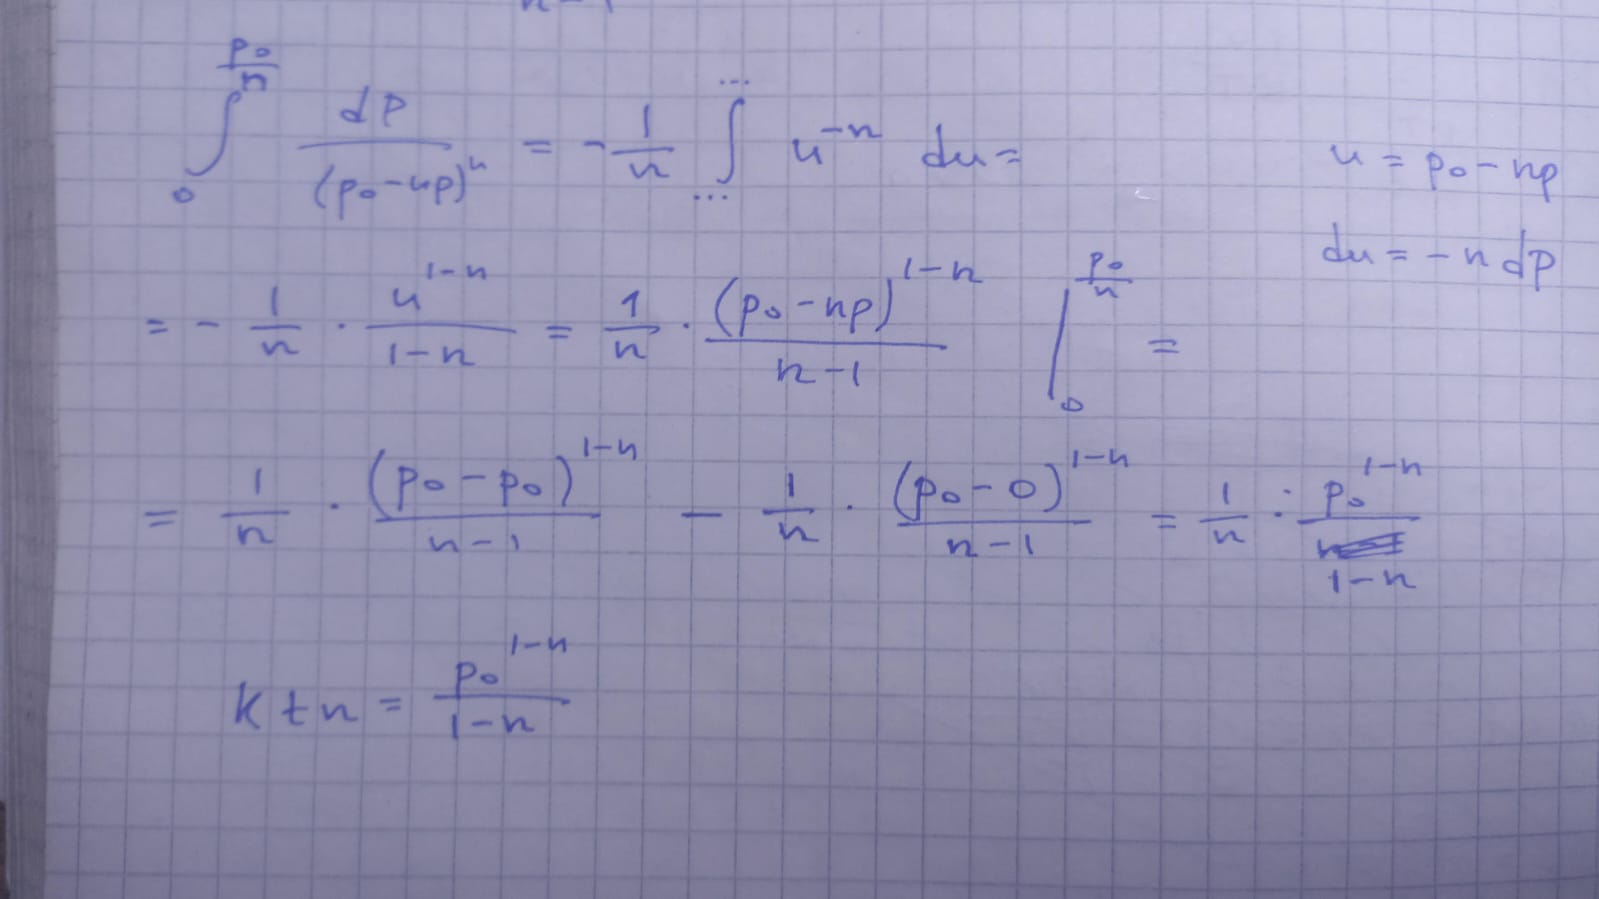 n-1
∫_0^{p₀/n} dP/(p₀-np)^n = -1/n ∫_{...}^{...} u^{-n} du =
u = p₀ - np
du = -n dP
= - 1/n · u^{1-n}/(1-n) = 1/n · (p₀-np)^{1-n}/(n-1) |_0^{p₀/n} =
= 1/n · (p₀-p₀)^{1-n}/(n-1) - 1/n · (p₀-0)^{1-n}/(n-1) = 1/n · p₀^{1-n}/(1-n)
k t n = p₀^{1-n}/(1-n)